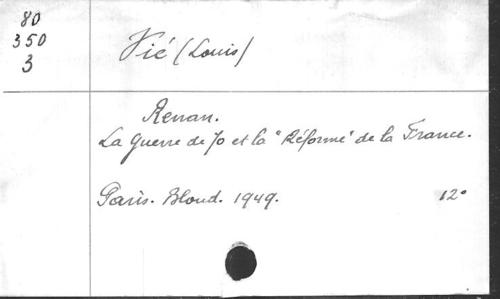 80
350
3
Vié (Louis)
Renan.
La Guerre de 70 et la "Réforme" de la France.
Paris. Bloud. 1949. 12°